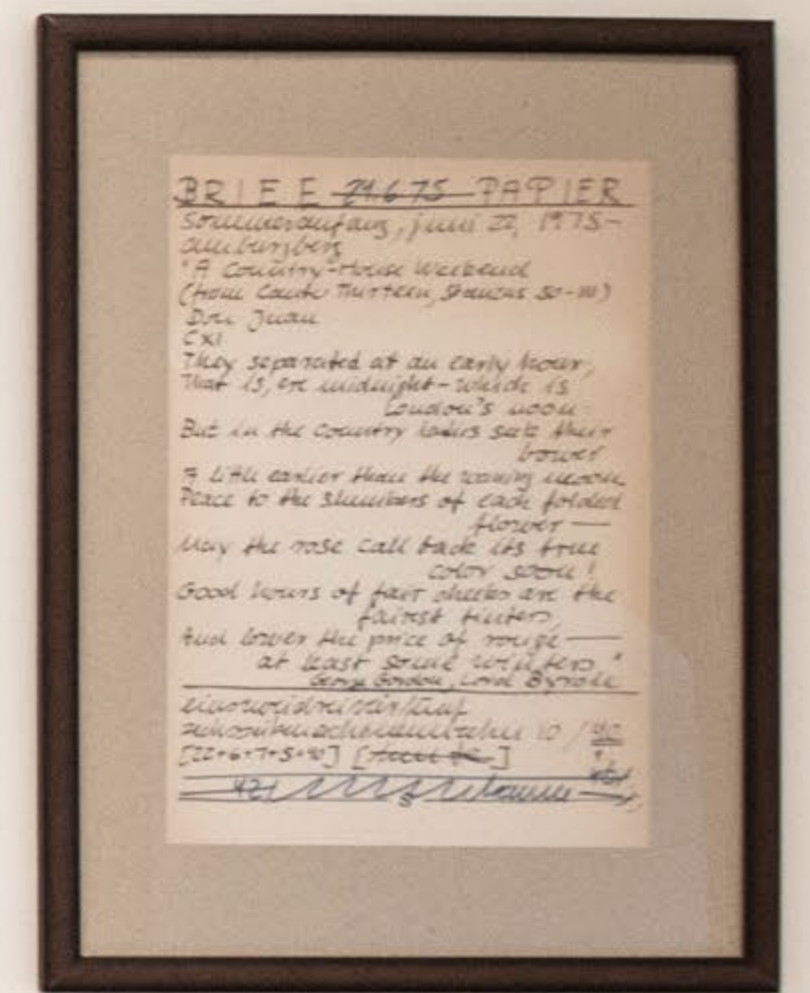 BRIEF 21.6.75 PAPIER
Sommeranfang, juni 22, 1975—
amburgberg
"A Country-House Weekend
(from Canto Thirteen, Stanzas 50-111)
Don Juan
CXI
They separated at an early hour;
That is, ere midnight—which is
London's noon:
But in the country ladies seek their
bower
A little earlier than the waning moon.
Peace to the slumbers of each folded
flower —
May the rose call back its true
color soon!
Good hours of fair cheeks are the
fairest tinters,
And lower the price of rouge —
at least some winters."
George Gordon, Lord Byron
einszweidreivierfünf
sechssiebenachtneunzehn 10 /
[22+6+7+5=40]